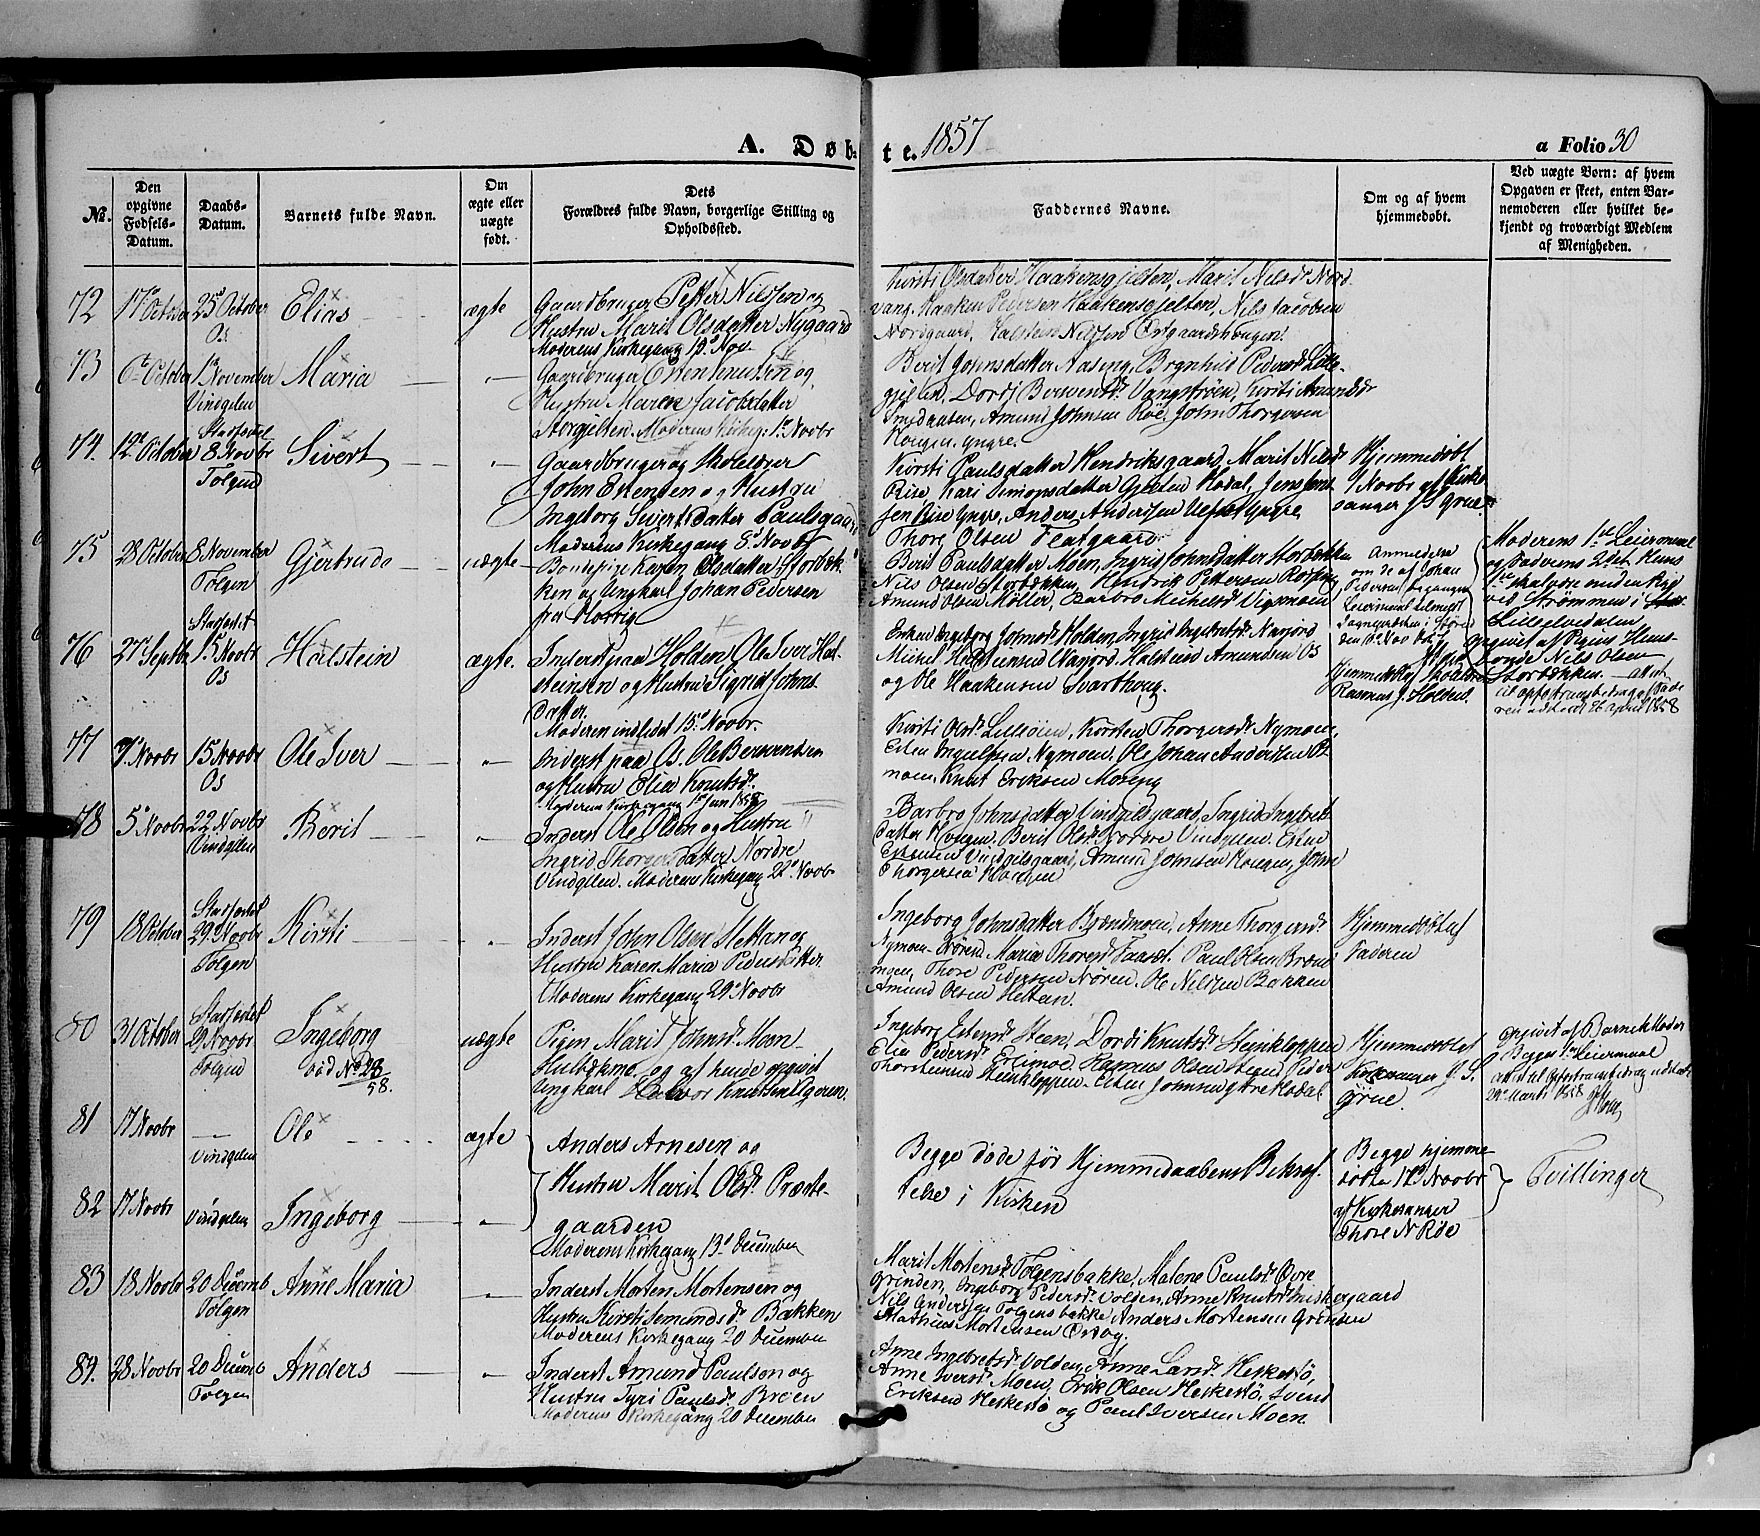 A. Døb- te. 1857
a Folio 30
No.
Den opgivne Fødsels-Datum.
Daabs-Datum.
Barnets fulde Navn.
Om ægte eller uægte født.
Dets Forældres fulde Navn, borgerlige Stilling og Opholdssted.
Faddernes Navne.
Om og af hvem hjemmedøbt.
Ved uægte Børn: af hvem Opgaven er skeet, enten Barnemoderen eller hvilket bekjendt og troværdigt Medlem af Menigheden.
72 17 October 25 October Os Elias ægte
Gaardbruger Petter Nilssen og
Hustru Marit Olsdatter Nygaard
Moderens Kirkegang 15 Nov.
Kirsti Olsdatter Haakensgjelten, Marit Nilsd. Nord-
vang, Haaken Pedersen Haakensgjelten, Nils Jacobsen
Nordgaard, Halstein Nilssen Østgaardshougen.
73 6 October 1 November Vindgelen Maria "
Gaardbruger Esten Knutsen og
Hustru Maren Jacobsdatter
Storgjelten. Moderens Kirkeg: 1 Novbr
Berit Johnsdatter Aaseng, Brynhild Pedersd. Lille-
gjelten, Dordi Bersvendsd. Vangstrøen, Kirsti Amundsd.
Amund Johnsen Røe, John Thorgersen
Hougen yngre.
74. 12 October 8 Novbr Tolgen Sivert "
Gaardbruger og Skolelærer
John Estensen og Hustru
Ingeborg Sivertsdatter Paulsgaard
Moderens Kirkegang 8 Novbr
Kirsti Paulsdatter Hendriksgaard, Marit Nilsd.
Rise, Kari Simonsdatter Gjelten Hodal, Jens Jen-
sen Rise yngre, Anders Andersen yngre
Thore Olsen Flatgaard.
Hjemmedøbt
1 Novbr af Kirke-
sanger J S Grue.
75 28 October 8 November Tolgen Gjertrude uægte
Bondepige Karen Olsdatter Storbæk-
ken og Ungkarl Johan Pedersen
fra
Berit Paulsdatter Moen, Ingrid Johnsdatter Storbækken
Nils Olsen Storbækken, Hendrik Pettersen
Amund Olsen Møller, Barbro Michelsd. Vigmoen
Anmeldelse
om de af Johan
Pedersen begangne
Leiermaal tilmeldt
Moderens 1ste Leiermaal
og Faderens 2det. Hans
ved Strømmen i
Lilleelvedalen
opgivet af Pigens Huus-
bonde Nils Olsen
Storbækken.
76 27 Septbr 15 Novbr Os Halstein ægte.
Inderst paa Holden Ole Iver Hal-
steinsen og Hustru Sigrid Johns-
datter.
Moderen indledet 15 Novbr.
Enken Ingeborg Johnsd. Holden, Ingrid Ingebretsd. Narjord
Michel Halsteinsen Narjord, Halstein Amundsen Os
og Ole Haakensen Svarthoug.
Hjemmedøbt af Skolelærer
Rasmus J. Holden.
77 7 Novbr 15 Novbr Os Ole Iver "
Inderst paa Os. Ole Bersvendsen
og Hustru Elie Knutsd.
Moderens Kirkegang 1 Jan 1858
Kirsti Olsd. Lilleøien, Kirsten Thorgersd. Nymoen,
Esten Ingulfsen Nymoen, Ole Johan Andersen Os
moen, Knut Eriksen Moseng
78 5 Novbr 22 Novbr Vindgelen Berit "
Inderst Ole Olsen og Hustru
Ingrid Thorgersdatter Nordre
Vindgelen. Moderens Kirkegang 22 Novbr
Barbro Johnsdatter Vindgilsgaard, Ingrid Ingebret
datter Hougen, Berit Olsd. Nordre Vindgelen, Esten
Estensen Vindgilsgaard, Amund Johnsen Hougen, John
Thorgersen Hougen
79 18 October 29 Novbr Tolgen Kirsti "
Inderst John Olsen Hettan og
Hustru Karen Maria Pedersdatter
Moderens Kirkegang 29 Novbr
Ingeborg Johnsdatter Brændmoen, Anne Thorgersd.
Nymoen Nøren, Maria Thoresd. Faaset, Paul Olsen Bræn
moen, Thore Pedersen Nøren, Ole Nilssen Bakken
Amund Olsen Hettan.
Hjemmedøbt af
Faderen
80 31 October 29 Novbr Tolgen Ingeborg uægte
død No 28/58.
Pigen Marit Johnsd. Moen
Hulbækmo, og af hende opgivet
Ungkarl Halvor Knutsen Ageren.
Ingeborg Estensd. Steen, Dordi Knutsd. Steinkloppen
Elie Pedersd. Erlimoe, Rasmus Olsen Steen, Peder
Thorstensen Steinkloppen, Esten Johnsen Hodal
Hjemmedøbt af
Kirkesanger J. S.
Grue.
Opgivet af Barnets Moder
Begges 1ste Leiermaal
81 17 Novbr — Vindgelen Ole ægte
82 17 Novbr Vindgelen Ingeborg "
Anders Arnesen og
Hustru Marit Olsd. Præste-
gaarden
Moderens Kirkegang 13 December
Begge døde før Hjemmedaabens Bekræf-
telse i Kirken
Begge hjemme
døbte 17 Novbr
af Kirkesanger
Thore N Røe
Tvillinger
83 18 Novbr 20 Decemb Tolgen Anne Maria "
Inderst Morten Mortensen og
Hustru Kirsti Semundsd. Bakken
Moderens Kirkegang 20 December
Marit Mortensd. Tolgensbakke, Malene Paulsd. Øvre
Grinden, Ingeborg Pedersd. Volden, Anne Knutsd.
Nils Andersen Tolgensbakke Anders Mortensen Grinden
Mathias Mortensen
84. 28 Novbr 20 Decemb Tolgen Anders "
Inderst Amund Paulsen og
Hustru Syri Paulsd. Brøen
Moderens Kirkegang 20 December
Anne Ingebretsd. Volden, Anne Larsd. Heskestø,
Anne Iversd. Moen, Erik Olsen Heskestø, Svend
Eriksen Heskestø og Paul Iversen Moen